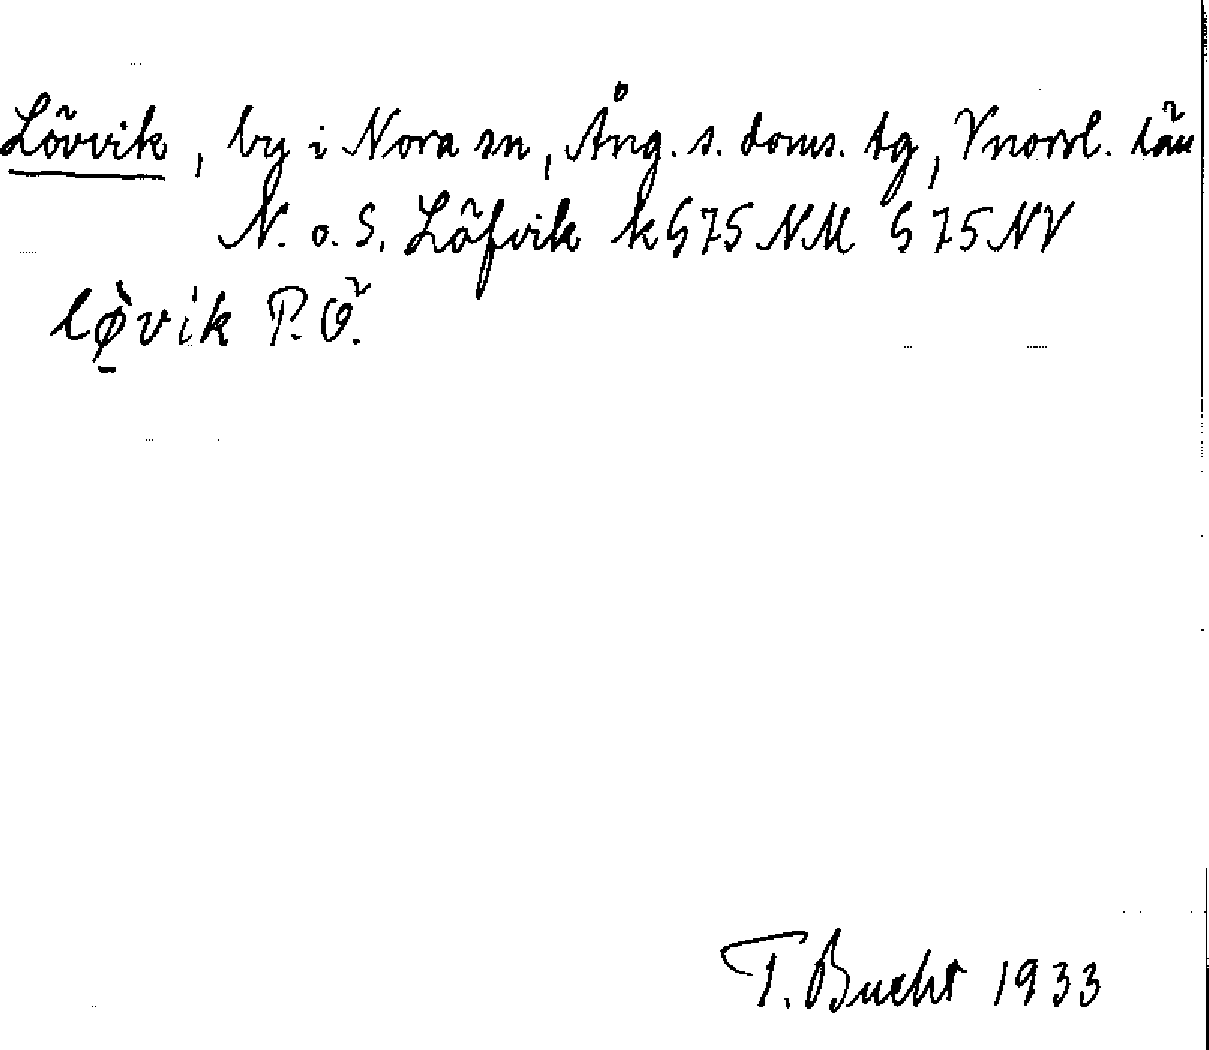 Lövvik, by i Nora sn, Ång. s. doms. tg, Vnorrl. län
N. o. S. Löfvik k G75 NM G 75 NV
lø̀vik P. Ö.
T. Bucht 1933